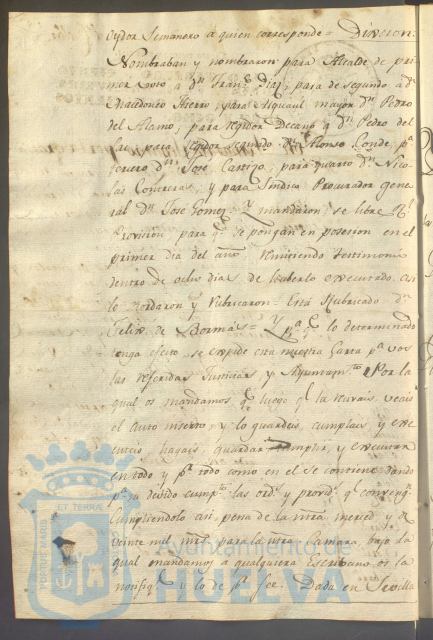 oydor Semanero a quien corresponde = Dixeron:
Nombraban y nombraron para Alcalde de pri
mer voto a Dn Franco Diaz, para de segundo a Dn
Macedonio Hierro, para Alguacil mayor Dn Pedro
del Alamo, para regidor Decano a Dn Pedro del
para regidor segundo Dn Alonso Conde, pa
tercero Dn José Castigo, para quarto Dn Nico
las Contreras, y para Síndico Procurador gene
ral Dn José Gomez. Y mandaron, se libre Rl
Provision para qe se pongan en posesion en el
primer dia del año remitiendo testimonio
dentro de ocho dias de haberlo executado. asi
lo acordaron y rubricaron = Está rubricado Dn
Felix de Bormas = Y pa qe lo determinado
tenga efecto se expide esta nuestra Carta pa vos
las referidas Justicias y Ayuntamto Por la
qual os mandamos qe luego qe la recivais veais
el auto inserto, y lo guardeis cumplais, y exe
cuteis hagais guardar cumplir, y executar
en todo y pr todo como en el se contiene dando
pa su debido cumpto las ords y provids qe convenga
Cumpliendolo asi pena de la ntra merced y de
veinte mil mrs para la ntra Camara, bajo la
qual mandamos a qualquiera Escribano os la
notifiqe y lo de pr fee. Dada en Sevilla
PORTUS MARIS
ET TERRÆ
Ayuntamiento de
HUELVA